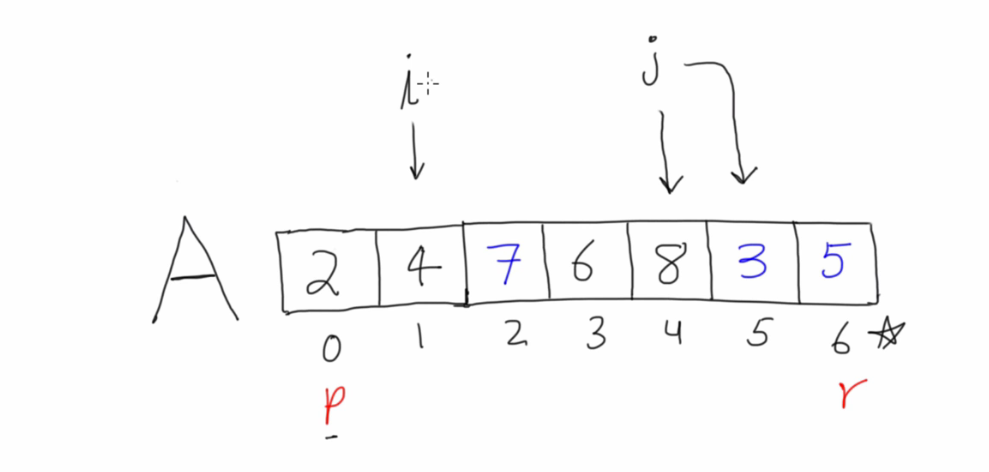 i j
A 2 4 7 6 8 3 5
0 1 2 3 4 5 6 ☆
p r